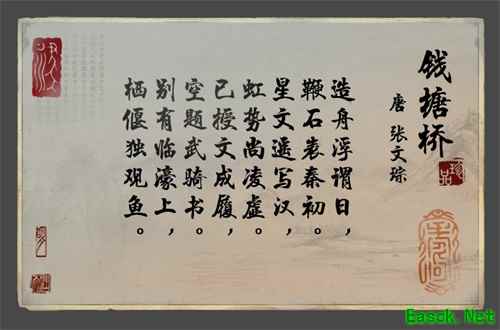 钱塘桥
唐 张文琮
造舟浮谓日，
鞭石表秦初。
星文遥写汉，
虹势尚凌虚。
已授文成履，
空题武骑书。
别有临濠上，
栖偃独观鱼。
Easck.Net